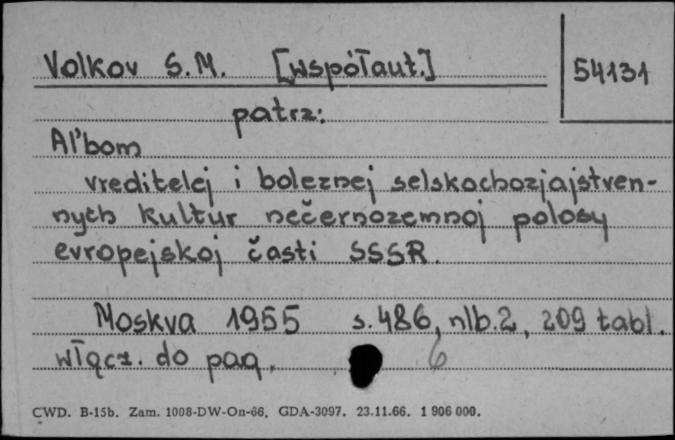 Volkov S.M. [współaut.] 54131
patrz:
Al'bom
vreditelej i boleznej selskochozjajstven-
nych kultur nečernozemnoj polosy
evropejskoj časti SSSR.
Moskva 1955 s. 486, nlb. 2, 209 tabl.
włącz. do pag. 6
CWD. B-15b. Zam. 1008-DW-On-66. GDA-3097. 23.11.66. 1 906 000.